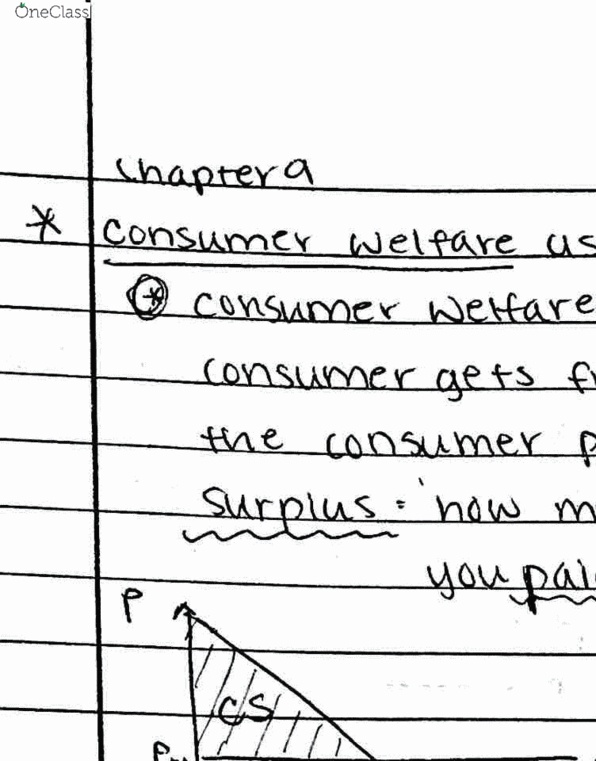 OneClass
Chapter 9
* Consumer welfare as
* consumer welfare
consumer gets
the consumer
surplus = how
you
P
CS